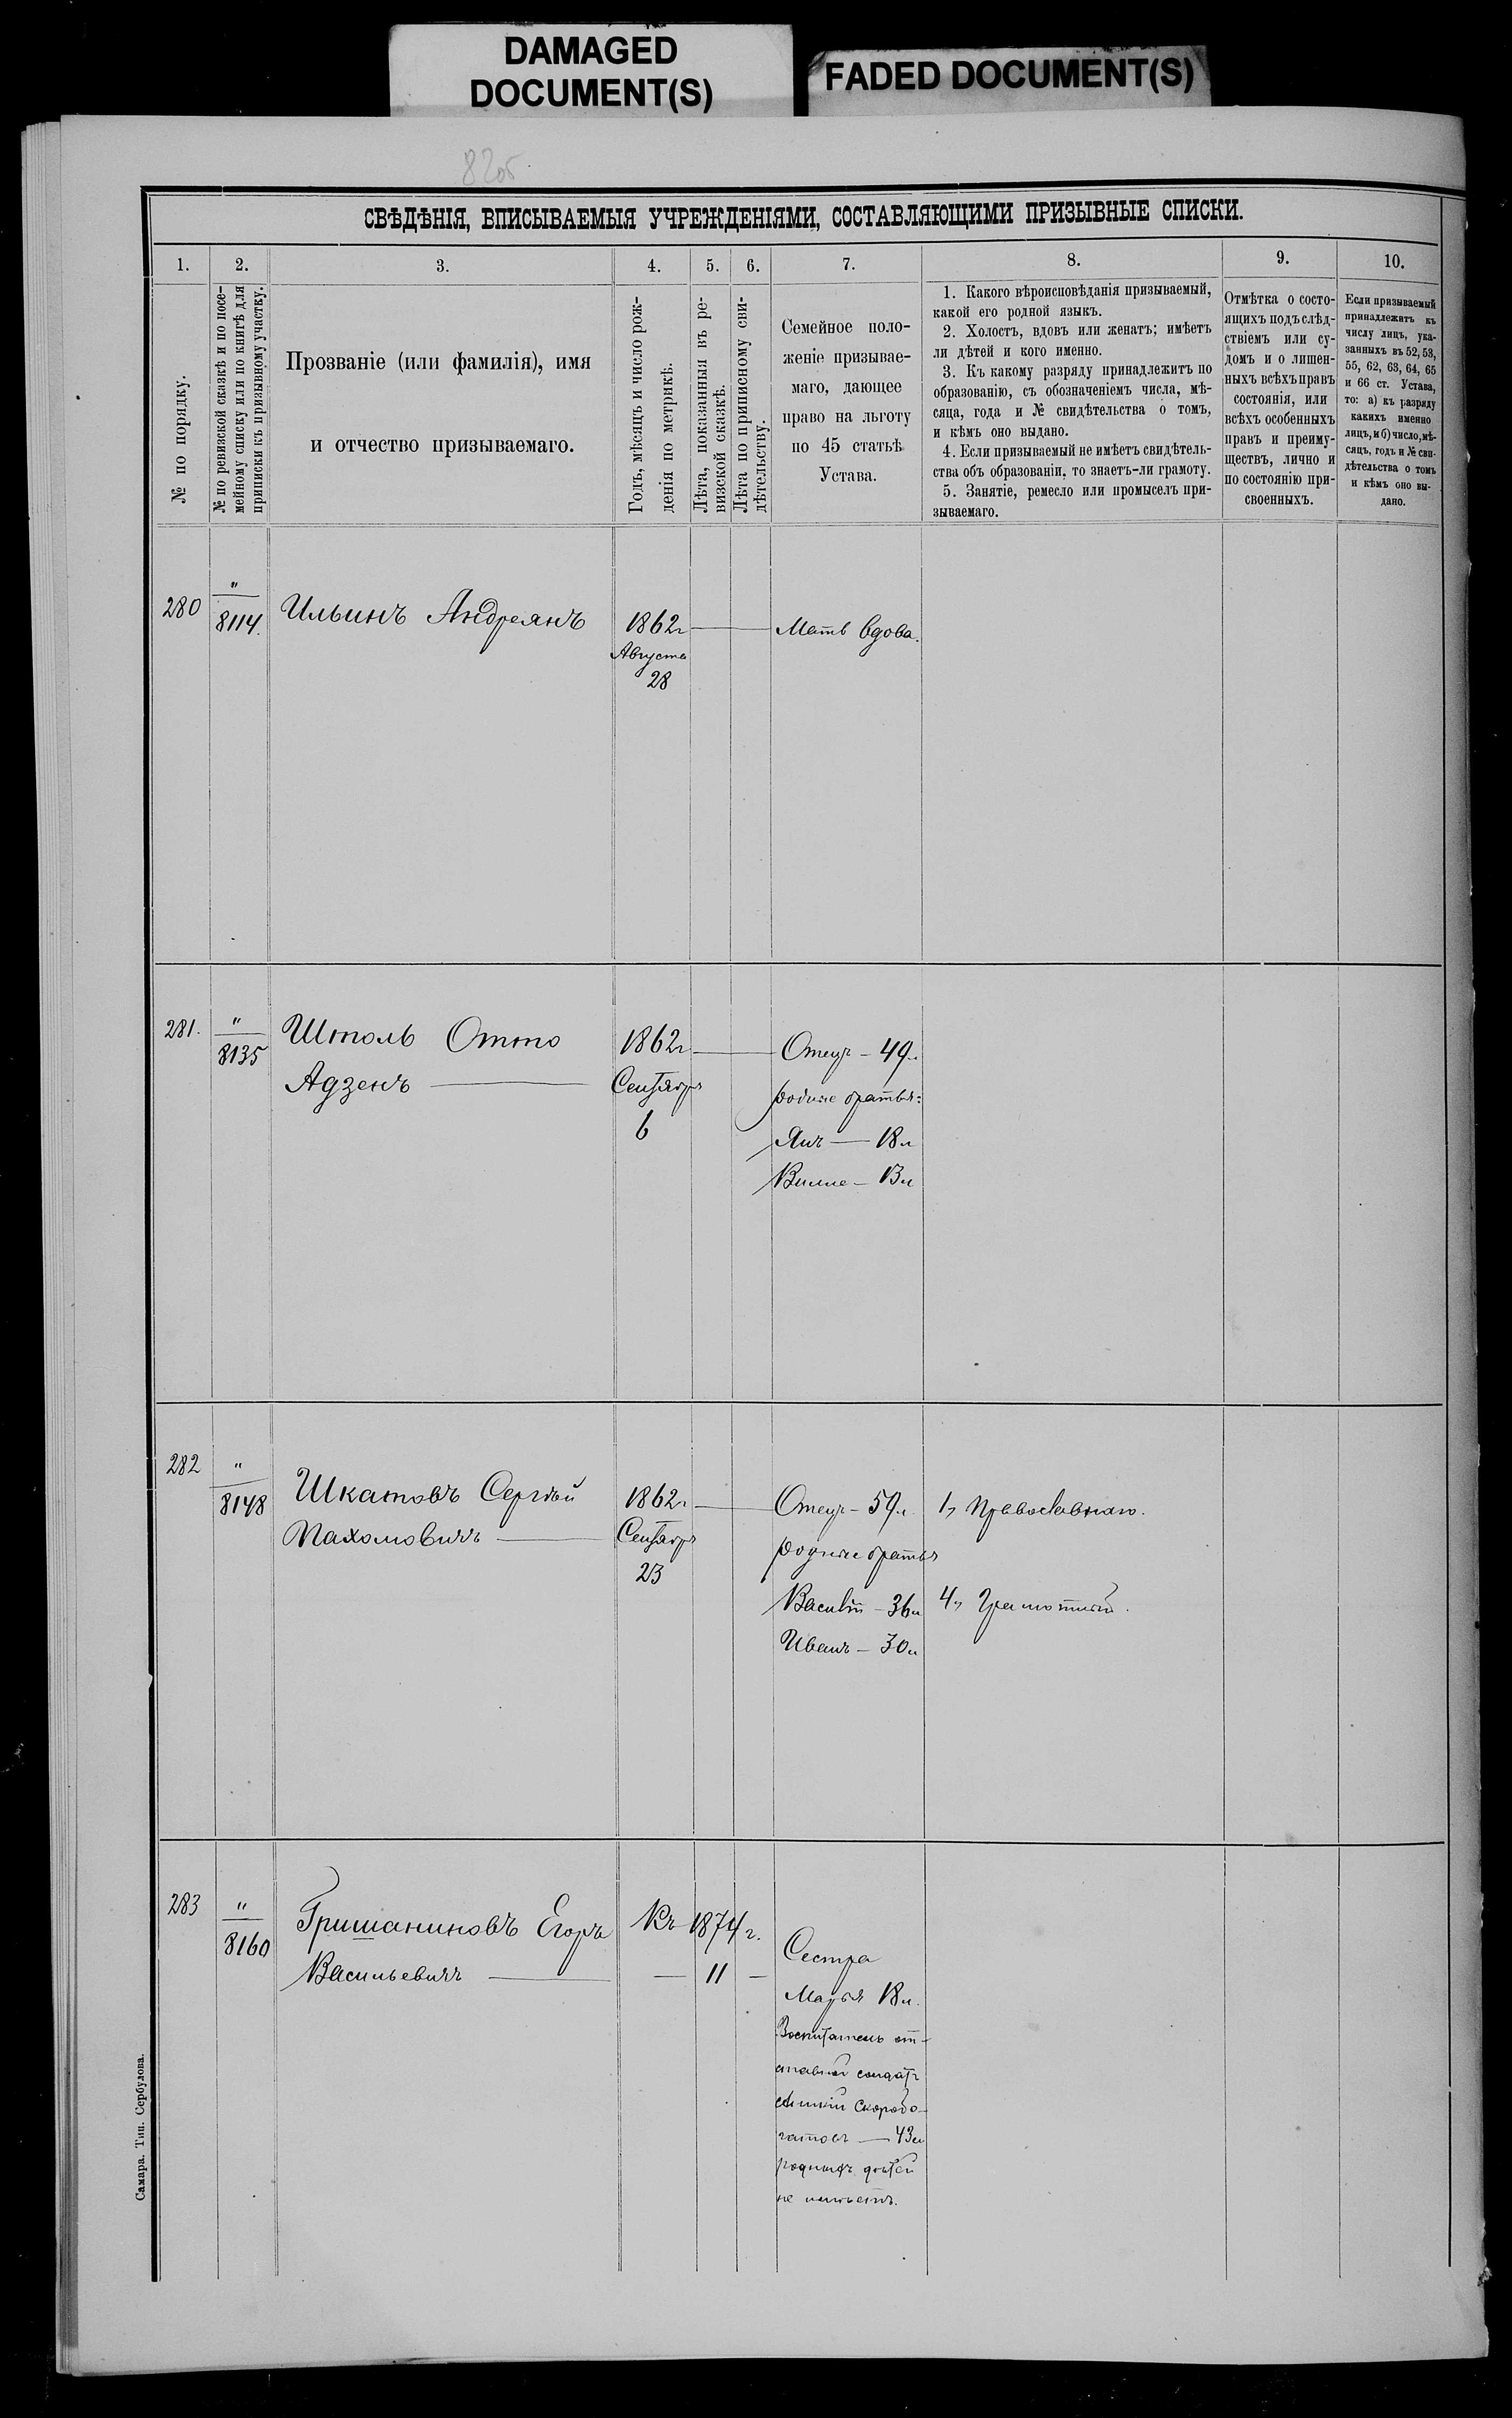 DAMAGED
DOCUMENT(S)
FADED DOCUMENT(S)
82об
СВѢДѢНІЯ, ВПИСЫВАЕМЫЯ УЧРЕЖДЕНІЯМИ, СОСТАВЛЯЮЩИМИ ПРИЗЫВНЫЕ СПИСКИ.
1.
2.
3.
4.
5.
6.
7.
8.
9.
10.
№ по порядку.
№ по ревизской сказкѣ и по посе-
мейному списку или по книгѣ для
приписки къ призывному участку.
Прозваніе (или фамилія), имя
и отчество призываемаго.
Годъ, мѣсяцъ и число рож-
денія по метрикѣ.
Лѣта, показанныя въ ре-
визской сказкѣ.
Лѣта по приписному сви-
дѣтельству.
Семейное поло-
женіе призывае-
маго, дающее
право на льготу
по 45 статьѣ
Устава.
1. Какого вѣроисповѣданія призываемый,
какой его родной языкъ.
2. Холостъ, вдовъ или женатъ; имѣетъ
ли дѣтей и кого именно.
3. Къ какому разряду принадлежитъ по
образованію, съ обозначеніемъ числа, мѣ-
сяца, года и № свидѣтельства о томъ,
и кѣмъ оно выдано.
4. Если призываемый не имѣетъ свидѣтель-
ства объ образованіи, то знаетъ-ли грамоту.
5. Занятіе, ремесло или промыселъ при-
зываемаго.
Отмѣтка о состо-
ящихъ подъ слѣд-
ствіемъ или су-
домъ и о лишен-
ныхъ всѣхъ правъ
состоянія, или
всѣхъ особенныхъ
правъ и преиму-
ществъ, лично и
по состоянію при-
своенныхъ.
Если призываемый
принадлежитъ къ
числу лицъ, ука-
занныхъ въ 52, 53,
55, 62, 63, 64, 65
и 66 ст. Устава,
то: а) къ разряду
какихъ именно
лицъ, и б) число, мѣ-
сяцъ, годъ и № сви-
дѣтельства о томъ
и кѣмъ оно вы-
дано.
280
"
8114.
Ильинъ Андреянъ
1862г
Августа
28
Мать вдова.
281.
"
8135
Штоль Отто
Адзенъ
1862г
Сентября
6
Отецъ - 49л.
родные братья:
Янъ — 18л
Вилле - 13л
282
"
8148
Шкатовъ Сергѣй
Пахомовичъ
1862г
Сентября
23
Отецъ - 59л.
родные братья
Василій - 36л
Иванъ - 30л
1, Православнаго.
4, Грамотный.
283
"
8160
Гришаниновъ Егоръ
Васильевичъ
Къ 1874г.
— 11 —
Сестра
Марья 18л.
Воспитатель от-
ставной солдатъ
Скоробо-
гатовъ — 43л
родныхъ дѣтей
не имѣетъ.
Самара. Тип. Сербулова.